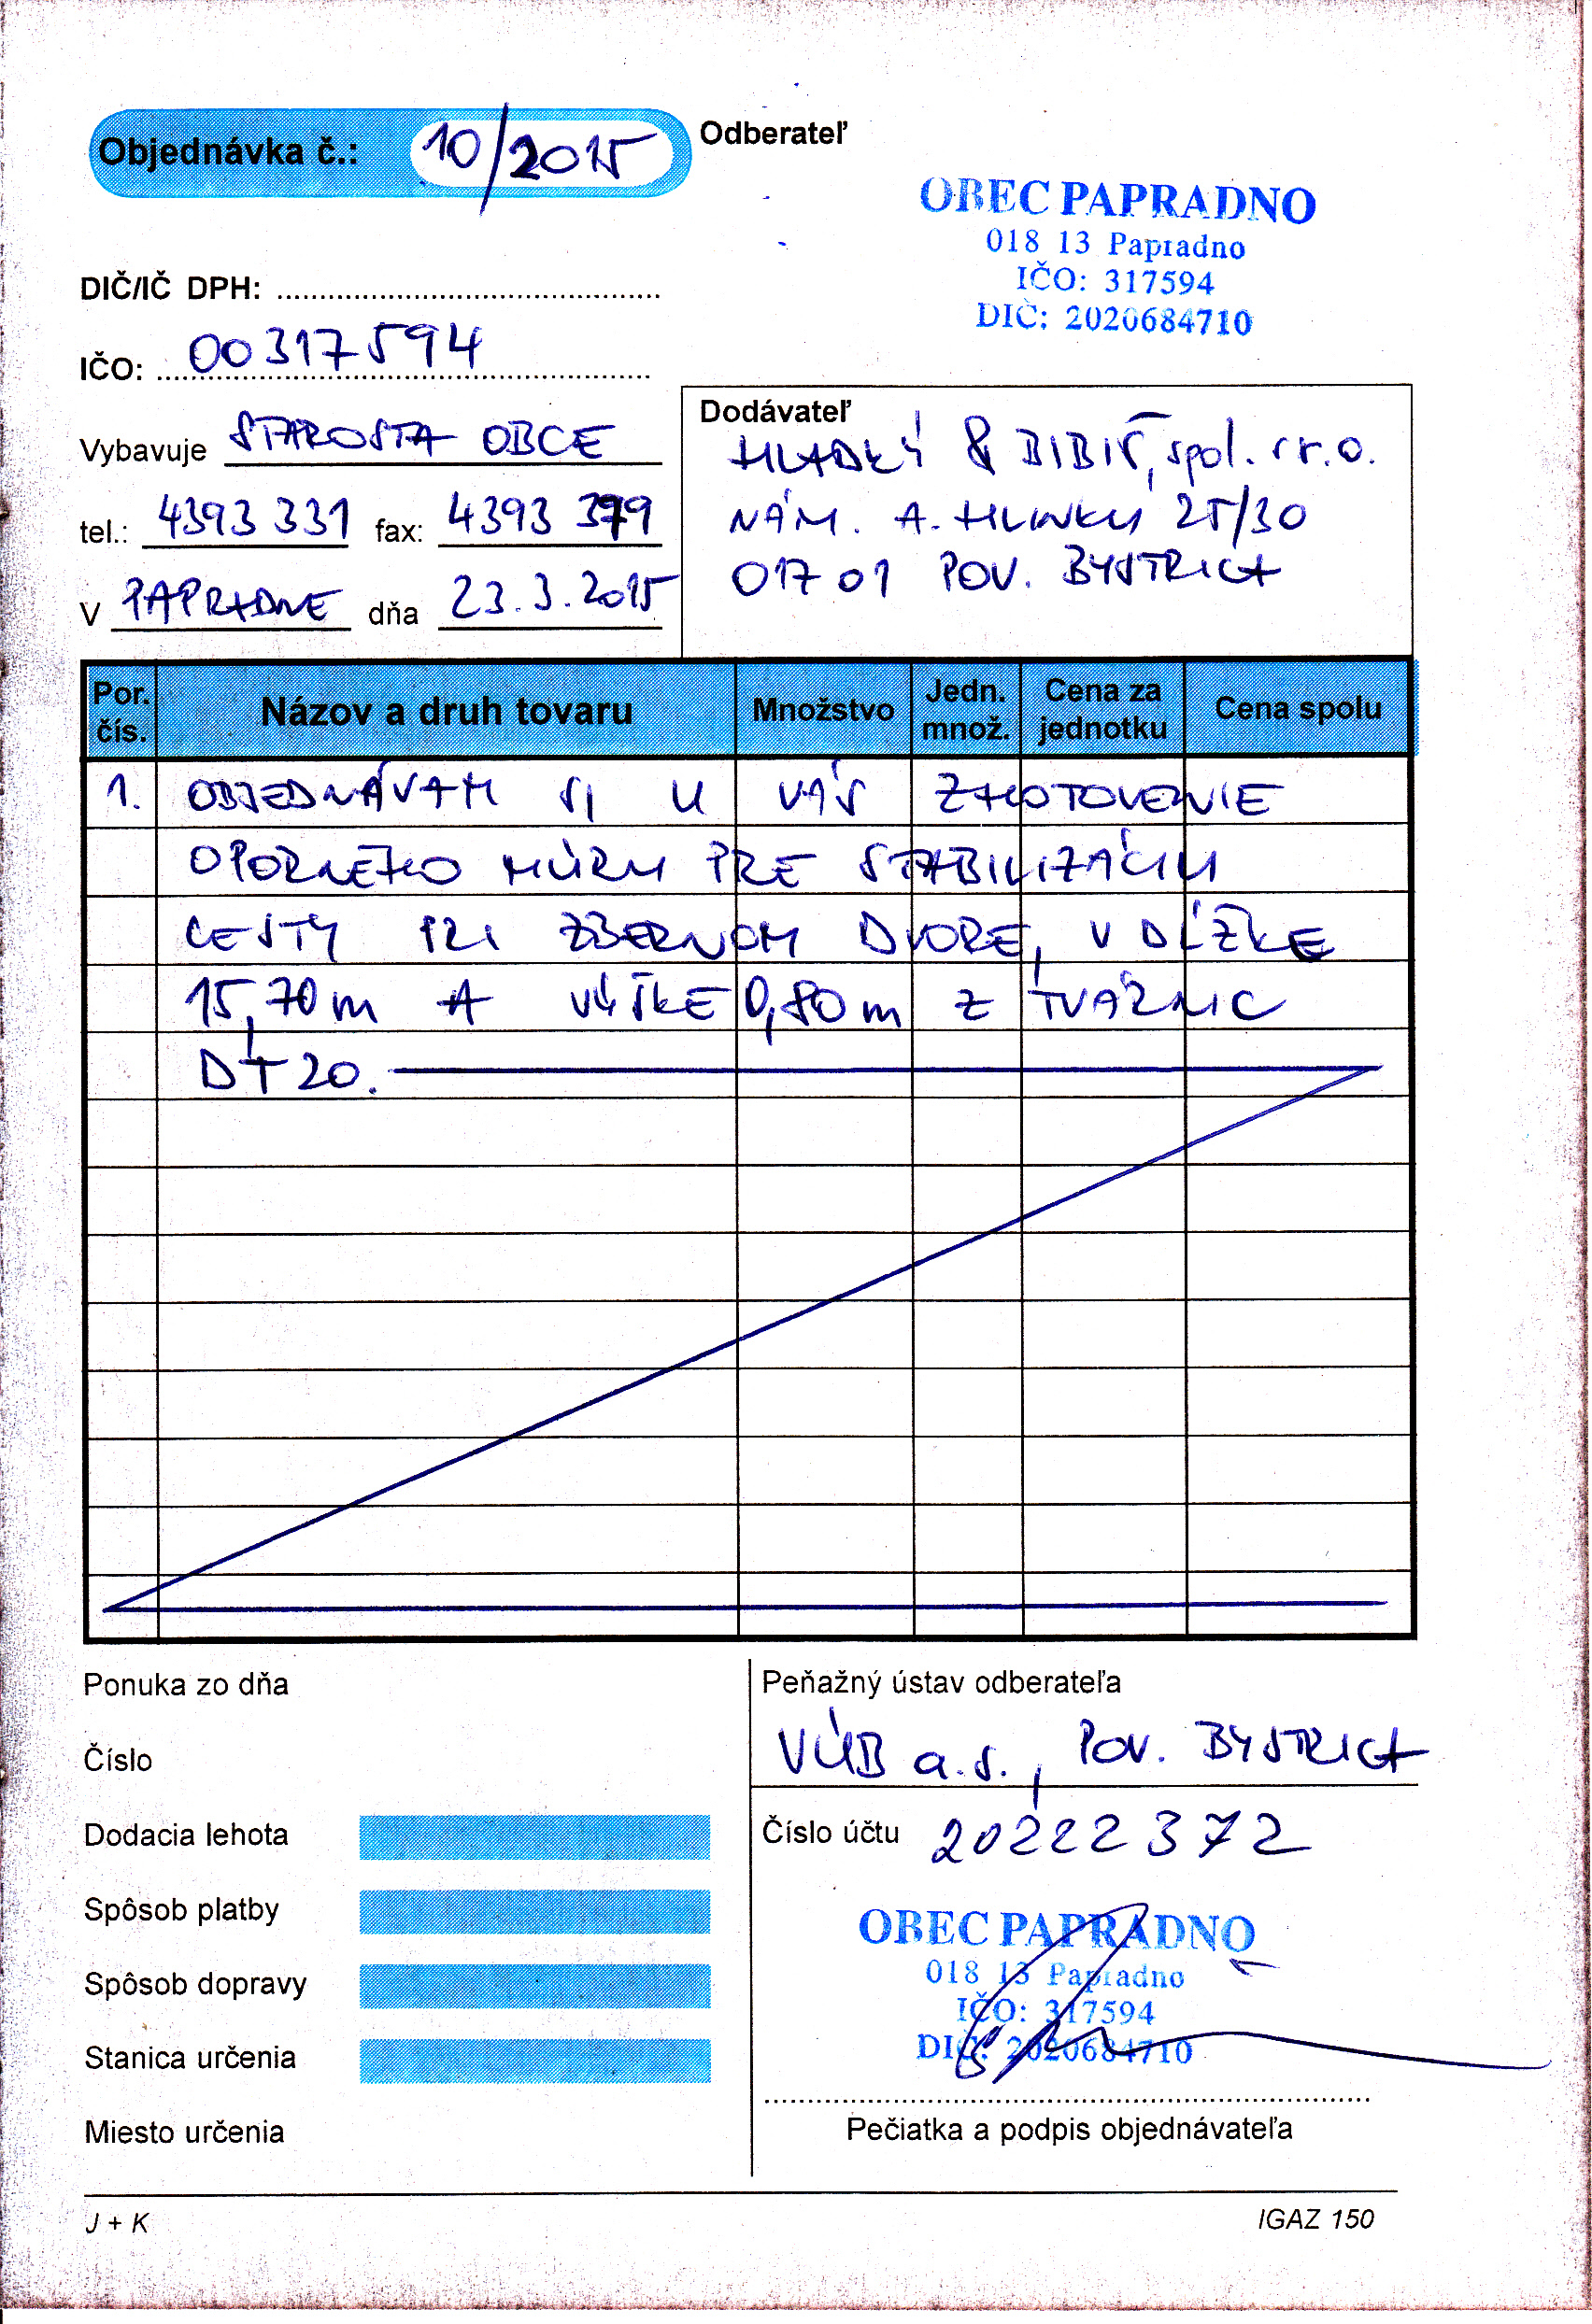 Objednávka č.: 10/2015
Odberateľ
OBEC PAPRADNO
018 13 Papradno
IČO: 317594
DIČ: 2020684710
DIČ/IČ DPH:
IČO: 00317594
Vybavuje STAROSTA OBCE
tel.: 4393 331 fax: 4393 379
V PAPRADNE dňa 23.3.2015
Dodávateľ
HLADKÝ & BIBIŠ, spol. s r.o.
NÁM. A. HLINKU 25/30
017 01 POV. BYSTRICA
Por. čís. Názov a druh tovaru Množstvo Jedn. množ. Cena za jednotku Cena spolu
1. OBJEDNÁVAM SI U VÁS ZHOTOVENIE
OPORNÉHO MÚRU PRE STABILIZÁCIU
CESTY PRI ZBERNOM DVORE, V DĹŽKE
15,70 m A VÝŠKE 0,80 m Z TVÁRNIC
DT 20.
Ponuka zo dňa
Číslo
Dodacia lehota
Spôsob platby
Spôsob dopravy
Stanica určenia
Miesto určenia
Peňažný ústav odberateľa
VÚB a.s., POV. BYSTRICA
Číslo účtu 20222372
OBEC PAPRADNO
018 13 Papradno
IČO: 317594
DIČ: 2020684710
Pečiatka a podpis objednávateľa
J + K
IGAZ 150